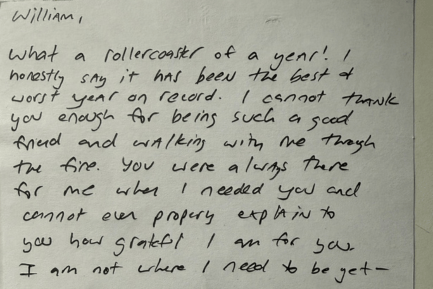 William,
What a rollercoaster of a year! I
honestly say it has been the best &
worst year on record. I cannot thank
you enough for being such a good
friend and walking with me though
the fire. You were always there
for me when I needed you and
cannot even properly explain to
you how grateful I am for you.
I am not where I need to be yet-